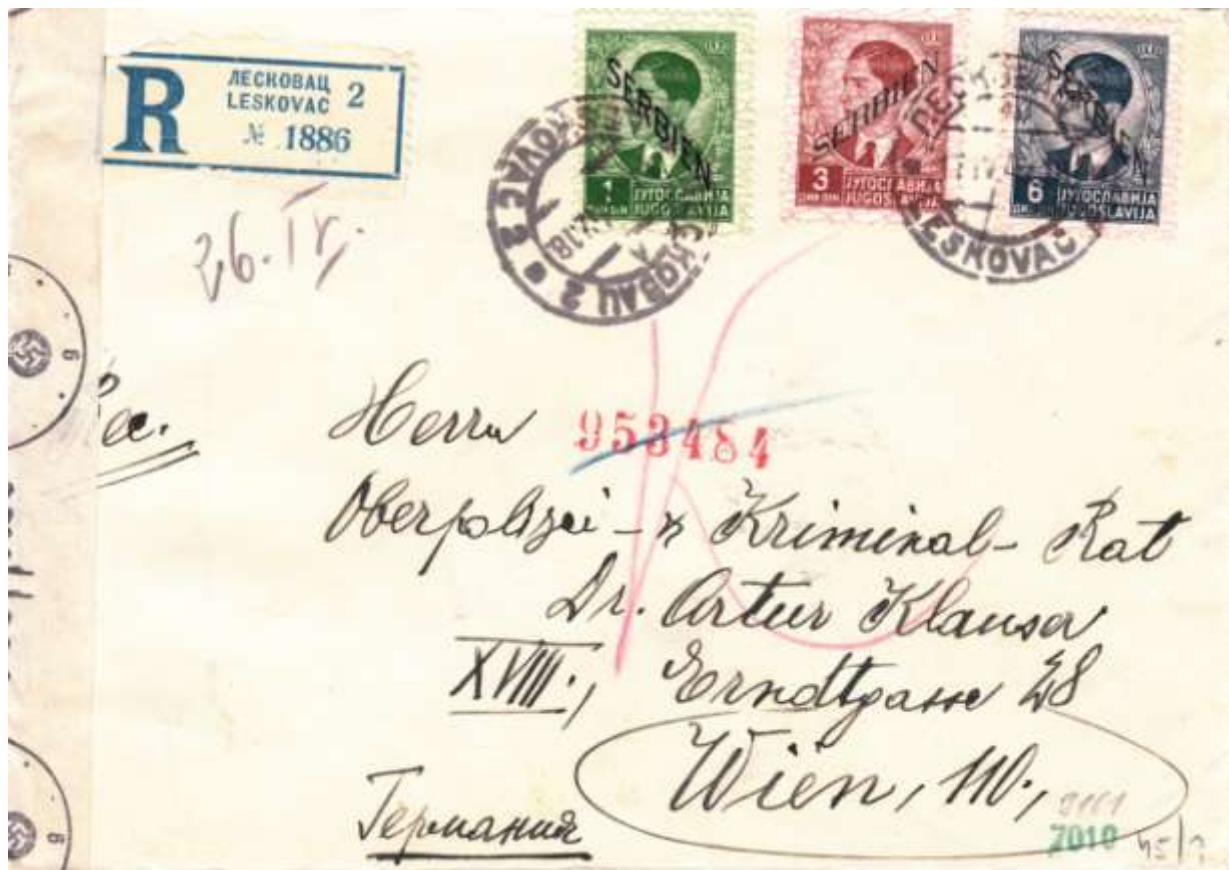 R ЛЕСКОВАЦ 2
LESKOVAC
№ 1886
SERBIEN
1 ЈУГОСЛАВИЈА
ДИН DIN JUGOSLAVIJA
SERBIEN
3 ЈУГОСЛАВИЈА
ДИН DIN JUGOSLAVIJA
SERBIEN
6 ЈУГОСЛАВИЈА
JUGOSLAVIJA
LESKOVAC
26. IV.
Herrn 953484
Oberpolizei - Kriminal - Rat
Dr. Artur Klauser
XVIII., Erndtgasse 28
Wien, 110.,
Германия
7010
45/
6
6